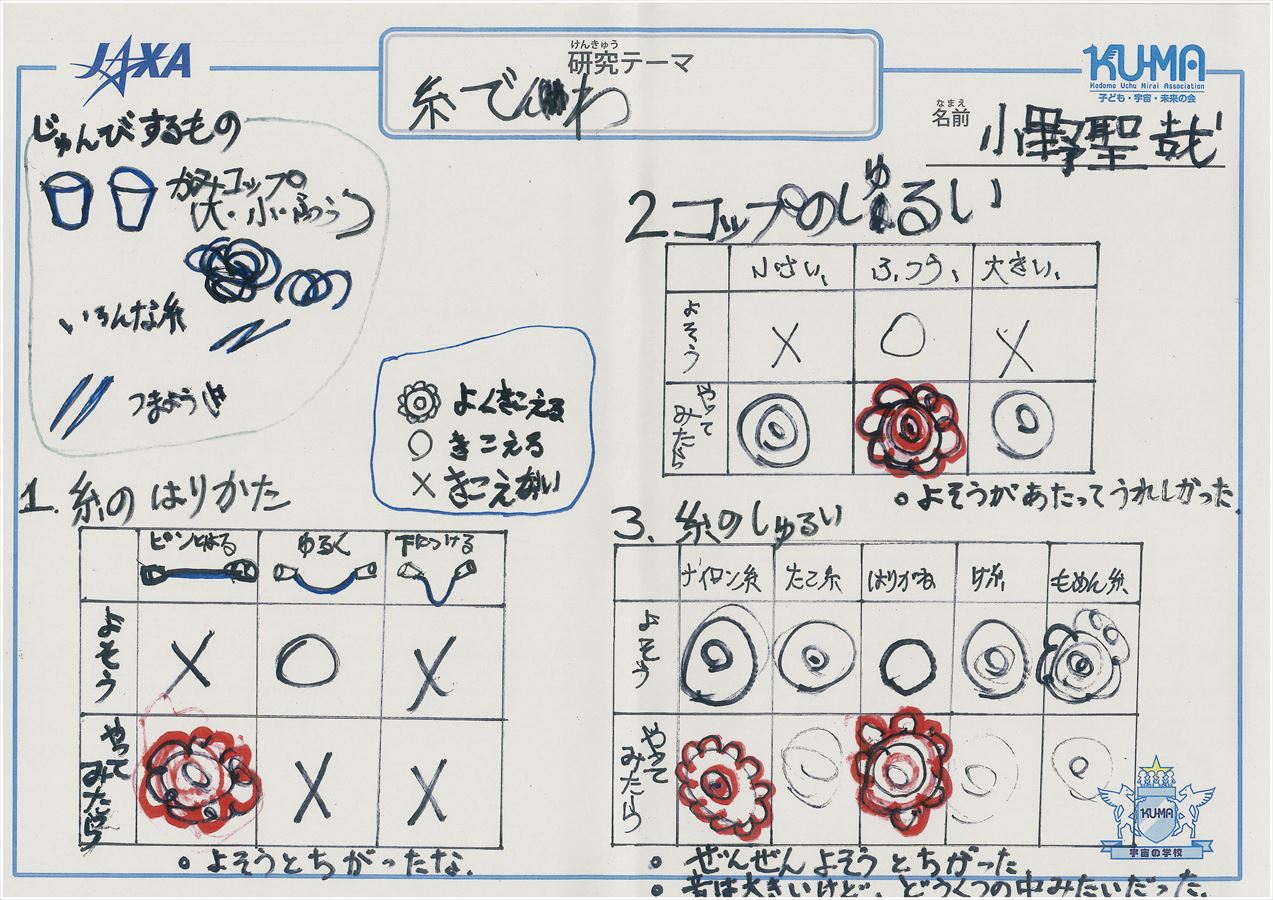 JAXA
けんきゅう
研究テーマ
糸でんわ
KU-MA
Kodomo Uchu Mirai Association
子ども・宇宙・未来の会
なまえ
名前
小野聖哉
じゅんびするもの
かみコップ
(大・小・ふつう)
いろんな糸
つまようじ
よくきこえる
○ きこえる
× きこえない
1. 糸のはりかた
ピンとはる ゆるく 下につける
よそう × ○ ×
やってみたら × ×
・よそうとちがったな。
2 コップのしゅるい
小さい、 ふつう、 大きい、
よそう × ○ ×
やってみたら ◎ ◎
・よそうがあたってうれしかった。
3. 糸のしゅるい
ナイロン糸 たこ糸 はりがね け糸 もめん糸、
よそう ◎ ◎ ○ ◎
やってみたら ◎ ◎ ◎
・ぜんぜんよそうとちがった
・音は大きいけど、どうくつの中みたいだった。
KU-MA
宇宙の学校